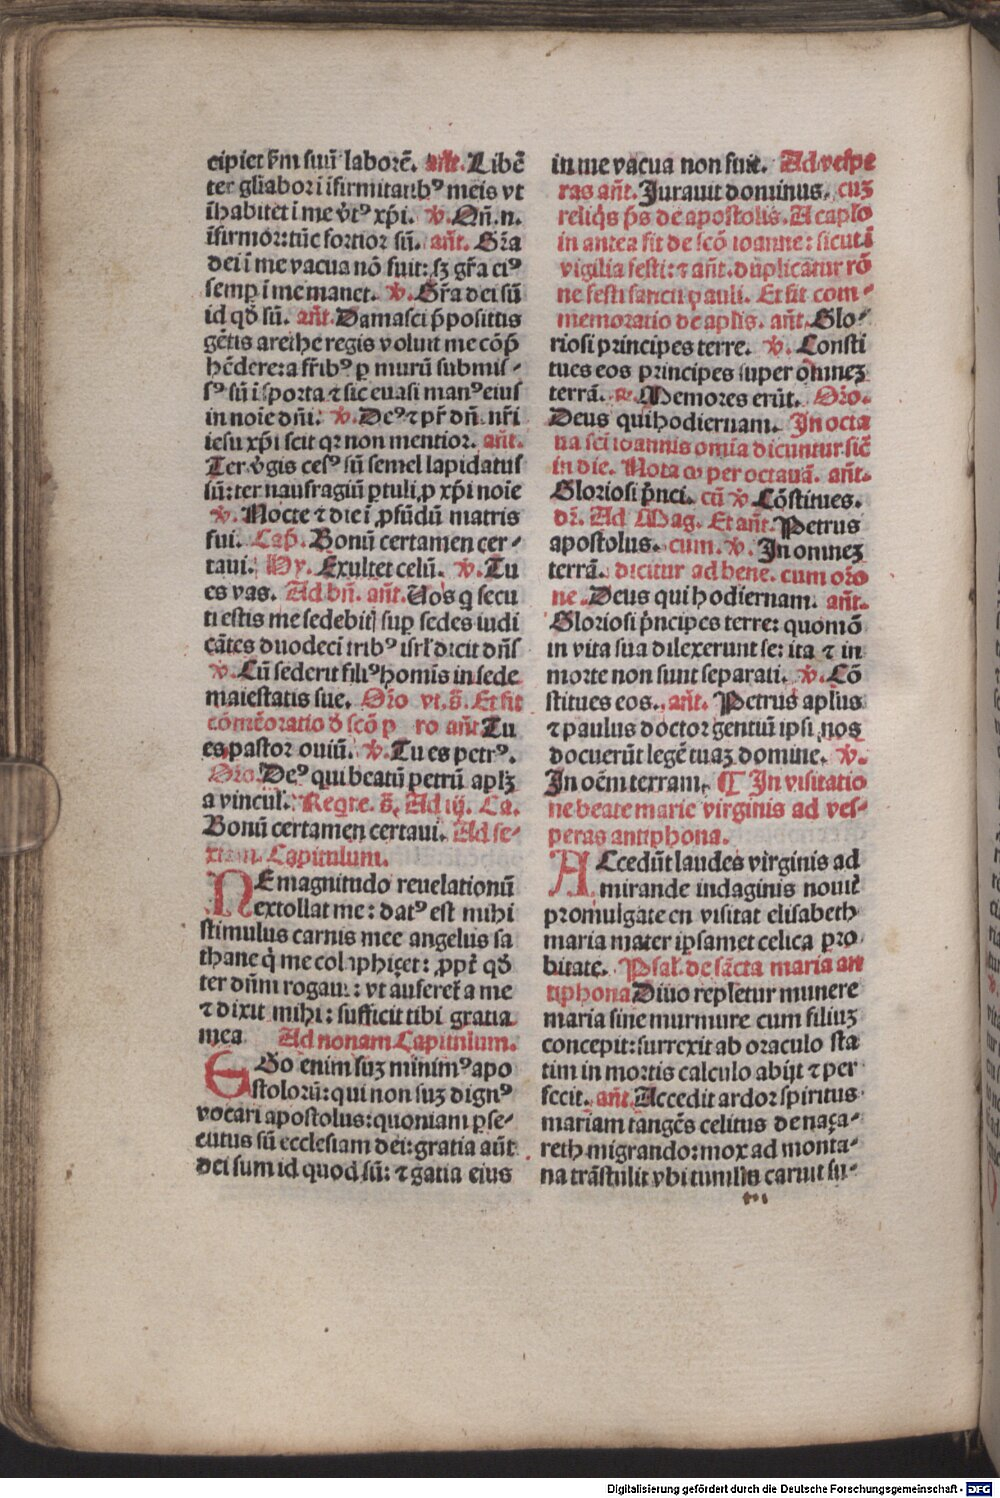 cipiet ẜm suū laborē. añt. Libē
ter gliabor ī īfirmitatibꝰ meis vt
īhabitet ī me v̓tꝰ xp̄i. ℣. Qn̄.n.
īfirmor: tūc fortior sū. añt. Gr̄a
dei ī me vacua nō fuit: sꝫ gr̄a eiꝰ
semꝑ ī me manet. ℣. Gr̄a dei sū
id qd̄ sū. añt. Damasci p̄positus
gētis arethe regis voluit me cōp̄
hēdere: a fr̄ibꝰ ꝑ murū submis⸗
sꝰ sū ī sporta ⁊ sic euasi manꝰ eius
in noīe dn̄i. ℣. Deꝰ ⁊ pr̄ dn̄i nr̄i
iesu xp̄i scit qꝛ non mentior. añt.
Ter v̓gis cesꝰ sū semel lapidatus
sū: ter naufragiū ꝑtuli ꝓ xp̄i noīe
℣. Nocte ⁊ die ī ꝓfūdū matris
fui. Cap̄. Bonū certamen cer⸗
taui. Hy. Exultet celū. ℣. Tu
es vas. Ad bn̄. añt. Uos q̄ secu
ti estis me sedebitꝭ suꝑ sedes iudi
cātes duodecī tribꝰ isrl̓ dicit dn̄s
℣. Cū sederit filiꝰ homīs in sede
maiestatis sue. Or̄o vt.s̄. Et fit
cōmēoratio d̄ scō p ro añt Tu
es pastor ouiū. ℣. Tu es petrꝰ.
Or̄o. Deꝰ qui beatū petrū apl̄ꝫ
a vincul̓. Reqre. s̄. Ad iij. Ca.
Bonū certamen certaui. Ad se⸗
xtam. Capitulum.
NE magnitudo reuelationū
extollat me: datꝰ est mihi
stimulus carnis mee angelus sa
thane q̇ me colaphiȥet: ꝓpt̓ qd̄
ter dn̄m rogaui: vt auferet̓ a me
⁊ dixit mihi: sufficit tibi gratia
mea Ad nonam Capitulum.
EGo enim suꝫ minimꝰ apo
stolorū: qui non suꝫ dignꝰ
vocari apostolus: quoniam ꝑse⸗
cutus sū ecclesiam dei: gratia aūt
dei sum id quod sū: ⁊ gatia eius
in me vacua non fuit. Ad vespe
ras añt. Jurauit dominus. cuꝫ
reliq̇s p̄s de apostolis. A caplo
in antea fit de scō ioanne: sicut ī
vigilia festi: ⁊ añt. duplicatur rō
ne festi sancti pauli. Et fit com⸗
memoratio de apl̄is. añt. Glo⸗
riosi principes terre. ℣. Consti
tues eos principes super omnez
terrā. ℞. Memores erūt. Or̄o.
Deus qui hodiernam. In octa
ua sci ioannis omīa dicuntur sic̄
in die. Nota ꝙ per octauā. añt.
Gloriosi p̓nci. cū ℣ Cōstitues.
dr̄. Ad Mag. Et añt. Petrus
apostolus. cum. ℣. In omnez
terrā. dicitur ad bene. cum or̄o
ne. Deus qui hodiernam. añt.
Gloriosi p̓ncipes terre: quomō
in vita sua dilexerunt se: ita ⁊ in
morte non sunt separati. ℣. Cō
stitues eos. añt. Petrus apl̄us
⁊ paulus doctor gentiū ipsi nos
docuerūt legē tuaꝫ domine. ℣.
In oēm terram. ¶ In visitatio
ne beate marie virginis ad ves⸗
peras antiphona.
ACcedūt laudes virginis ad
mirande indaginis nouit̓
promulgate en visitat elisabeth
maria mater ipsamet celica pro
bitate. Psal̓. de sācta maria an
tiphona Diuo repletur munere
maria sine murmure cum filiuꝫ
concepit: surrexit ab oraculo sta
tim in montis calculo abijt ⁊ per
fecit. añt. Accedit ardor spiritus
mariam tangēs celitus de naȥa⸗
reth migrando: mox ad monta⸗
na trāstulit vbi tumulis caruit su⸗
Digitalisierung gefördert durch die Deutsche Forschungsgemeinschaft - DFG